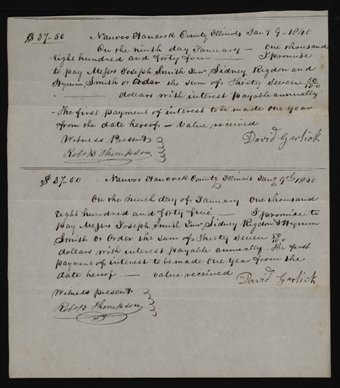 $37-50 Nauvoo Hancock County Illinois Jany 9-1840
On the ninth day January - one thousand
eight hundred and forty five - I promise
to pay Messrs Joseph Smith Senr Sidney Rigdon and
Hyrum Smith or Order the sum of Thirty Seven 50/100
dollars with interest payable annually
- The first payment of interest to be made one year
from the date hereof - Value received
Witness Present
David Garlick
Robt B Thompson
$37.00 Nauvoo Hancock County Illinois Jany 9th 1840
On the ninth day of January one thousand
eight hundred and forty five - I promise to
pay Messrs Joseph Smith Senr Sidney Rigdon & Hyrum
Smith or Order the sum of Thirty Seven
dollars with interest payable annually The first
payment of interest to be made one year from the
date hereof - value received
David Garlick
Witness present
Robt B Thompson